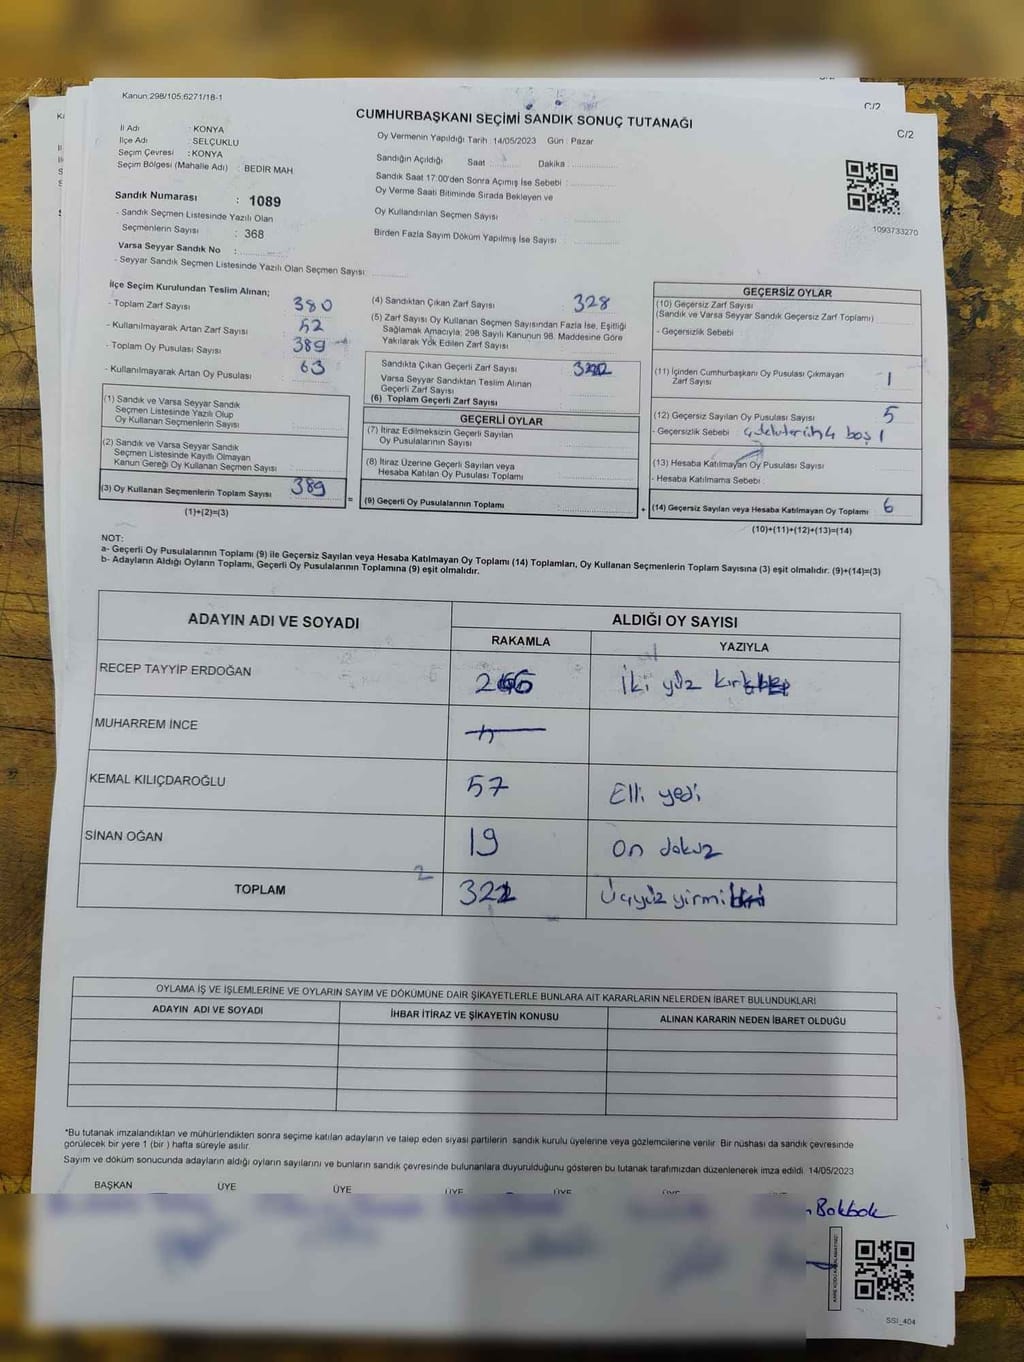 Kanun:298/105;6271/18-1
C/2
C/2
CUMHURBAŞKANI SEÇİMİ SANDIK SONUÇ TUTANAĞI
İl Adı : KONYA
İlçe Adı : SELÇUKLU
Seçim Çevresi : KONYA
Seçim Bölgesi (Mahalle Adı) : BEDİR MAH
Oy Vermenin Yapıldığı Tarih 14/05/2023 Gün : Pazar
Sandığın Açıldığı Saat Dakika
Sandık Saat 17:00'den Sonra Açımış İse Sebebi :
Oy Verme Saati Bitiminde Sırada Bekleyen ve
Oy Kullandırılan Seçmen Sayısı
Birden Fazla Sayım Döküm Yapılmış İse Sayısı
1093733270
Sandık Numarası : 1089
- Sandık Seçmen Listesinde Yazılı Olan
Seçmenlerin Sayısı : 368
Varsa Seyyar Sandık No :
- Seyyar Sandık Seçmen Listesinde Yazılı Olan Seçmen Sayısı:
İlçe Seçim Kurulundan Teslim Alınan;
- Toplam Zarf Sayısı 380
- Kullanılmayarak Artan Zarf Sayısı 52
- Toplam Oy Pusulası Sayısı 389
- Kullanılmayarak Artan Oy Pusulası 63
(1) Sandık ve Varsa Seyyar Sandık
Seçmen Listesinde Yazılı Olup
Oy Kullanan Seçmenlerin Sayısı
(2) Sandık ve Varsa Seyyar Sandık
Seçmen Listesinde Kayıtlı Olmayan
Kanun Gereği Oy Kullanan Seçmen Sayısı
(3) Oy Kullanan Seçmenlerin Toplam Sayısı 389
(1)+(2)=(3)
(4) Sandıktan Çıkan Zarf Sayısı 328
(5) Zarf Sayısı Oy Kullanan Seçmen Sayısından Fazla İse, Eşitliği
Sağlamak Amacıyla; 298 Sayılı Kanunun 98. Maddesine Göre
Yakılarak Yok Edilen Zarf Sayısı
Sandıkta Çıkan Geçerli Zarf Sayısı
Varsa Seyyar Sandıktan Teslim Alınan
Geçerli Zarf Sayısı
(6) Toplam Geçerli Zarf Sayısı
GEÇERLİ OYLAR
(7) İtiraz Edilmeksizin Geçerli Sayılan
Oy Pusulalarının Sayısı
(8) İtiraz Üzerine Geçerli Sayılan veya
Hesaba Katılan Oy Pusulası Toplamı
= (9) Geçerli Oy Pusulalarının Toplamı
GEÇERSİZ OYLAR
(10) Geçersiz Zarf Sayısı
(Sandık ve Varsa Seyyar Sandık Geçersiz Zarf Toplamı)
- Geçersizlik Sebebi
(11) İçinden Cumhurbaşkanı Oy Pusulası Çıkmayan
Zarf Sayısı 1
(12) Geçersiz Sayılan Oy Pusulası Sayısı 5
- Geçersizlik Sebebi boş 1
(13) Hesaba Katılmayan Oy Pusulası Sayısı
- Hesaba Katılmama Sebebi :
+ (14) Geçersiz Sayılan veya Hesaba Katılmayan Oy Toplamı 6
(10)+(11)+(12)+(13)=(14)
NOT:
a- Geçerli Oy Pusulalarının Toplamı (9) ile Geçersiz Sayılan veya Hesaba Katılmayan Oy Toplamı (14) Toplamları, Oy Kullanan Seçmenlerin Toplam Sayısına (3) eşit olmalıdır: (9)+(14)=(3)
b- Adayların Aldığı Oyların Toplamı, Geçerli Oy Pusulalarının Toplamına (9) eşit olmalıdır.
ADAYIN ADI VE SOYADI ALDIĞI OY SAYISI
RAKAMLA YAZIYLA
RECEP TAYYİP ERDOĞAN İki yüz
MUHARREM İNCE
KEMAL KILIÇDAROĞLU 57 Elli yedi
SİNAN OĞAN 19 On dokuz
2
TOPLAM Üçyüz yirmi
OYLAMA İŞ VE İŞLEMLERİNE VE OYLARIN SAYIM VE DÖKÜMÜNE DAİR ŞİKAYETLERLE BUNLARA AİT KARARLARIN NELERDEN İBARET BULUNDUKLARI
ADAYIN ADI VE SOYADI İHBAR İTİRAZ VE ŞİKAYETİN KONUSU ALINAN KARARIN NEDEN İBARET OLDUĞU
*Bu tutanak imzalandıktan ve mühürlendikten sonra seçime katılan adayların ve talep eden siyasi partilerin sandık kurulu üyelerine veya gözlemcilerine verilir. Bir nüshası da sandık çevresinde
görülecek bir yere 1 (bir ) hafta süreyle asılır.
Sayım ve döküm sonucunda adayların aldığı oyların sayılarını ve bunların sandık çevresinde bulunanlara duyurulduğunu gösteren bu tutanak tarafımızdan düzenlenerek imza edildi. 14/05/2023
BAŞKAN ÜYE ÜYE ÜYE ÜYE ÜYE
Bokbok
SSI_404